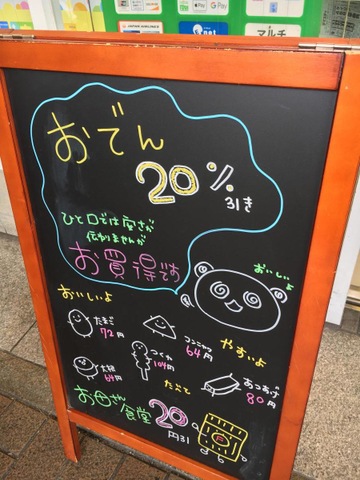 おでん
20%
引き
ひと口では良さが
伝わりませんが
お買得です
おいしい
よ
おいしいよ
たまご
72円
コンニャク
64円
やすいよ
大根
64円
つくね
104円
あつあげ
80円
お母さん食堂
20
円引
G Pay
マルチ